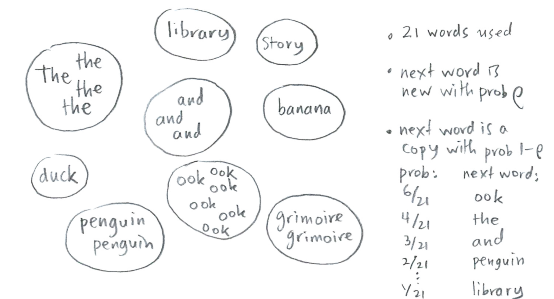 library
story
the
The
the
the
and
and
and
banana
duck
ook ook
ook
ook
ook
ook
penguin
penguin
grimoire
grimoire
• 21 words used
• next word is
new with prob ρ
• next word is a
copy with prob 1-ρ
prob: next word:
6/21 ook
4/21 the
3/21 and
2/21 penguin
⋮
1/21 library